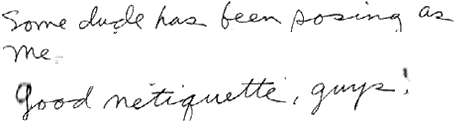 Some dude has been posing as
me.
Good netiquette, guys!